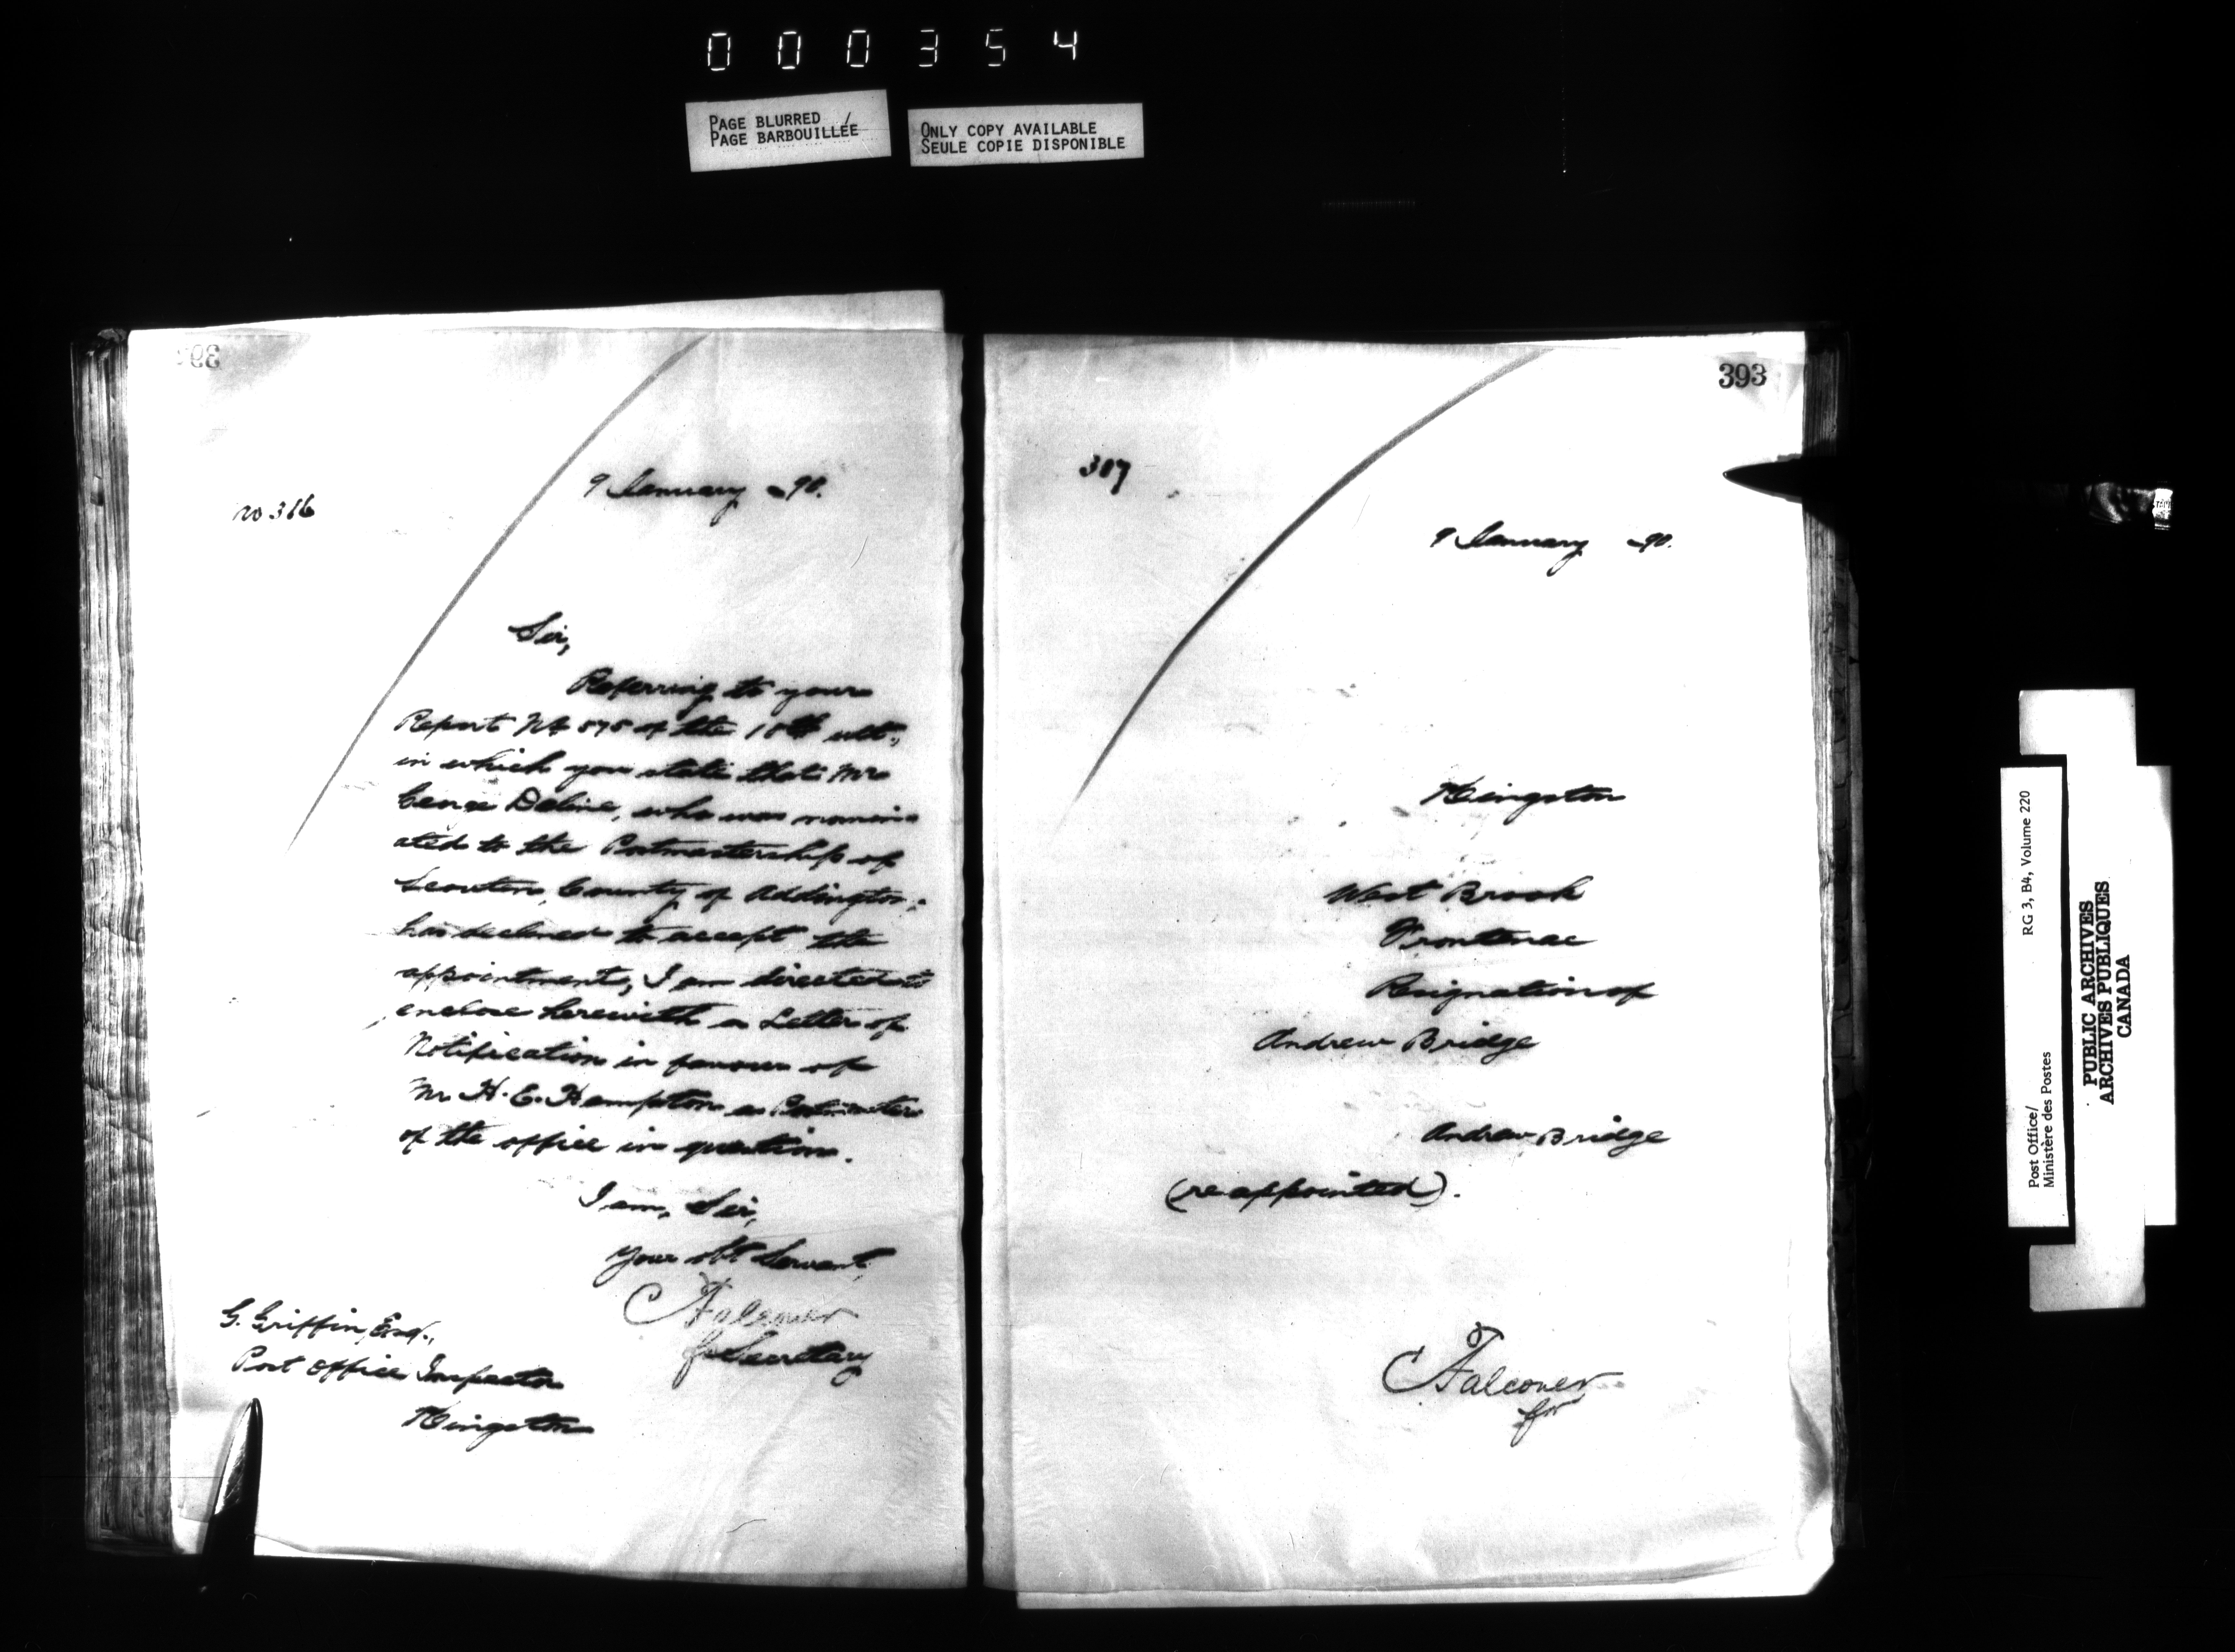 000354
PAGE BLURRED
PAGE BARBOUILLÉE
ONLY COPY AVAILABLE
SEULE COPIE DISPONIBLE
No 316
9 January -90.
Sir,
Referring to your
Report No 575 of the 18th ult.,
in which you state that Mr
Deline, who was nomin-
ated to the Postmastership of
County of Addington,
has declined to accept the
appointment, I am directed to
enclose herewith a Letter of
Notification in favour of
Mr H. E. Hampton as Postmaster
of the office in question.
I am, Sir,
Your obt Servant,
Falconer
for Secretary
G. Griffin, Esq.,
Post Office Inspector
Kingston
393
317
9 January -90.
Kingston
West Brook
Frontenac
Resignation of
Andrew Bridge
Andrew Bridge
(re appointed).
Falconer
for
Post Office/
Ministère des Postes
RG 3, B4, Volume 220
PUBLIC ARCHIVES
ARCHIVES PUBLIQUES
CANADA